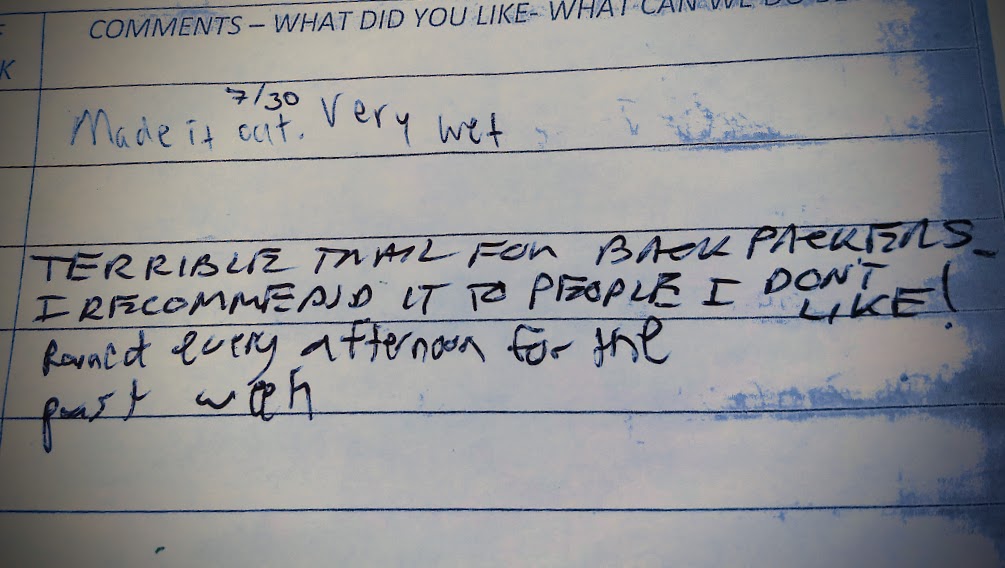 COMMENTS – WHAT DID YOU LIKE- WHAT CAN WE DO
K
7/30
Made it out. Very wet
TERRIBLE TRAIL FOR BACKPACKERS
I RECOMMEND IT TO PEOPLE I DON'T
LIKE!
Rained every afternoon for the
past week